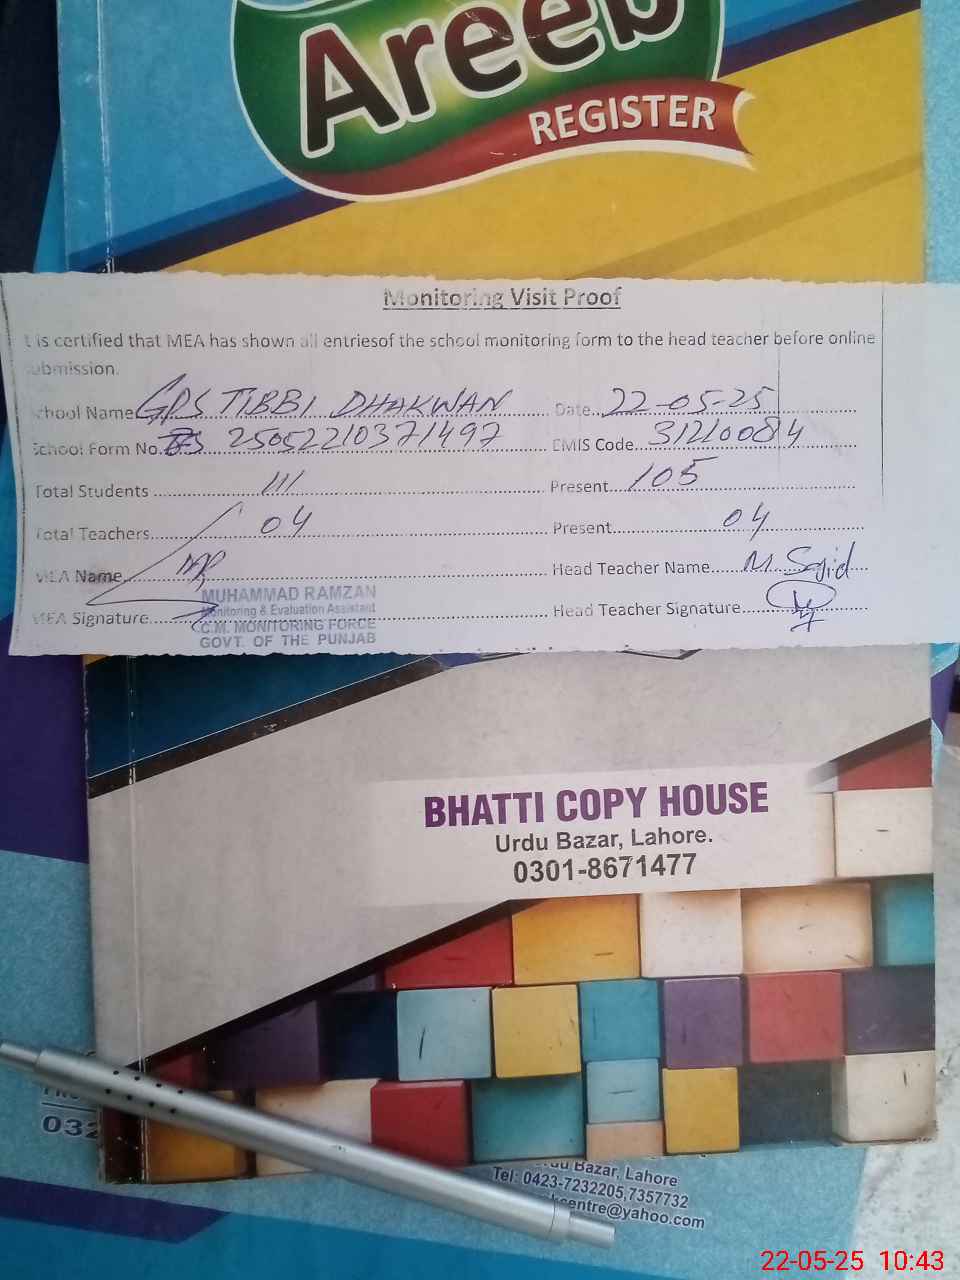 Areeb
REGISTER
Monitoring Visit Proof
t is certified that MEA has shown all entriesof the school monitoring form to the head teacher before online
ubmission.
chool Name GPS TIBBI DHAKWAN Date.. 22-05-25
School Form No. 25052210371497 EMIS Code... 31210084
Total Students 111 Present... 105
Total Teachers... 04 Present... 04
MEA Name Head Teacher Name... M Sajid
MUHAMMAD RAMZAN
Monitoring & Evaluation Assistant
MEA Signature... Head Teacher Signature...
C.M. MONITORING FORCE
GOVT. OF THE PUNJAB
BHATTI COPY HOUSE
Urdu Bazar, Lahore.
0301-8671477
032
du Bazar, Lahore
Tel: 0423-7232205,7357732
centre@yahoo.com
22-05-25 10:43